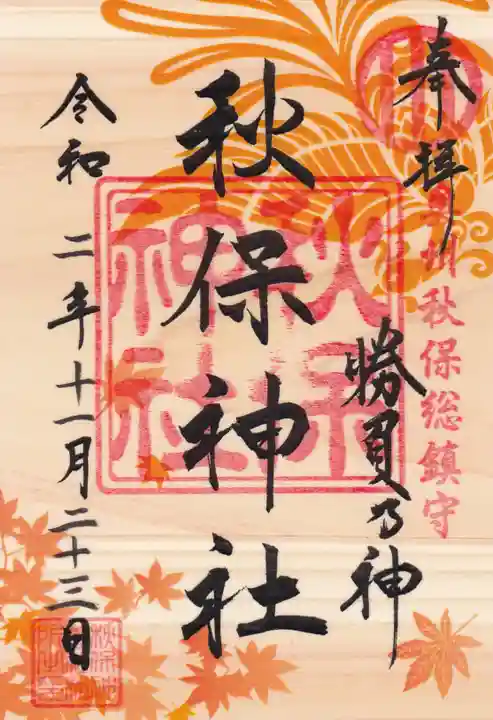 奉拝
奥州秋保総鎮守
勝負乃神
秋保神社
秋保神社
令和二年十一月二十三日